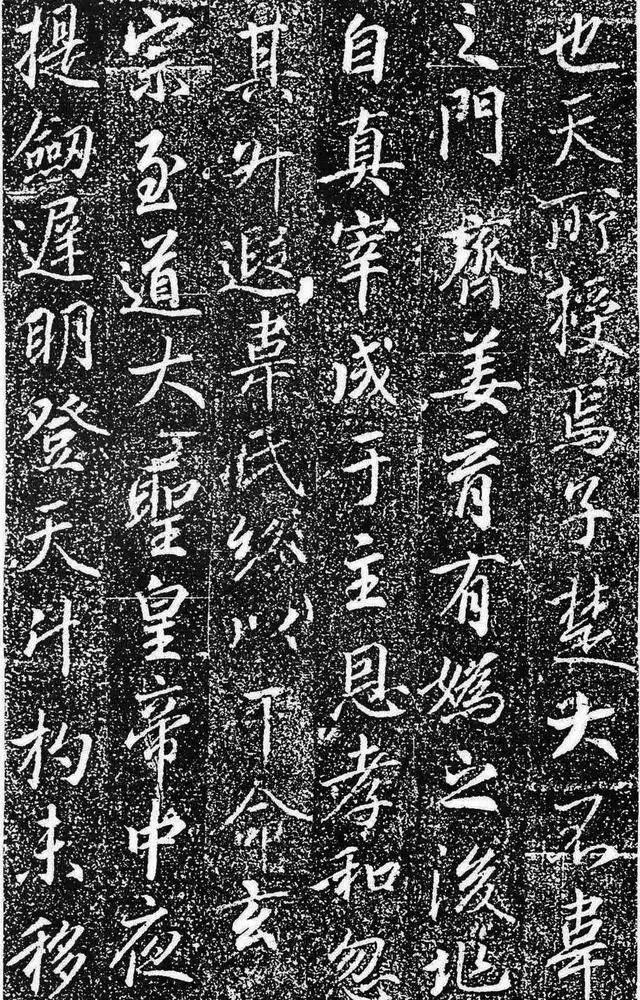 也天所授焉子楚大不韋
之門齊姜育有媯之後
自真宰成于主恩孝和忽
其升遐韋氏以命玄
宗至道大聖皇帝中夜
提劒遲明登天斗杓未移